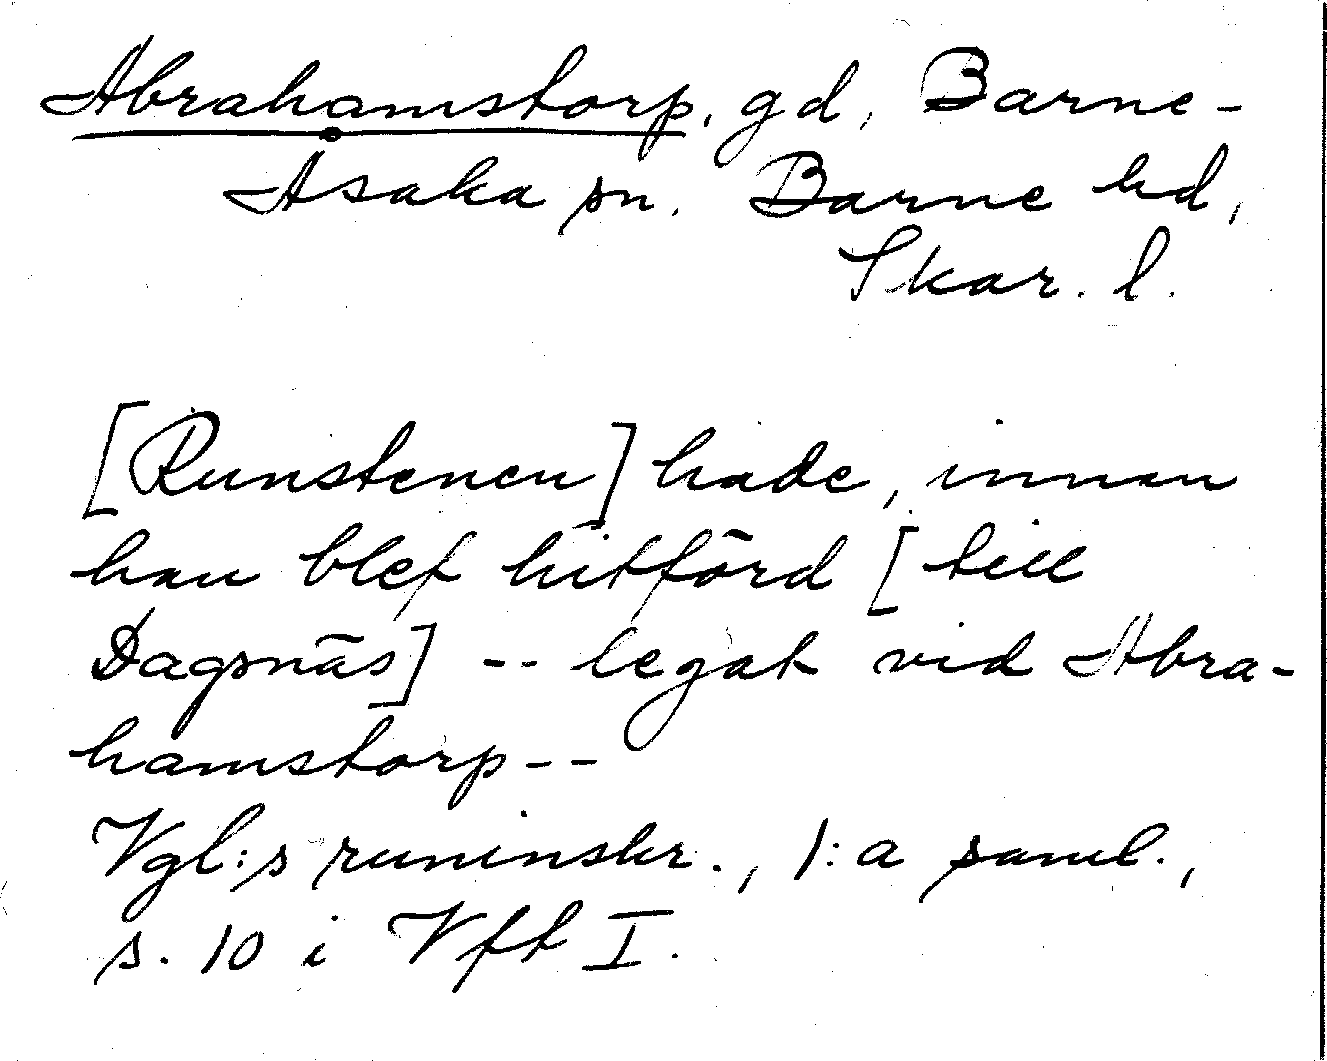 Abrahamstorp, gd, Barne-
Åsaka sn. Barne hd,
Skar. l.
[Runstenen] hade, innan
han blef hitförd [till
Dagsnäs] -- legat vid Abra-
hamstorp--
Vgl:s runinskr., 1:a saml.,
s. 10 i Vft I.